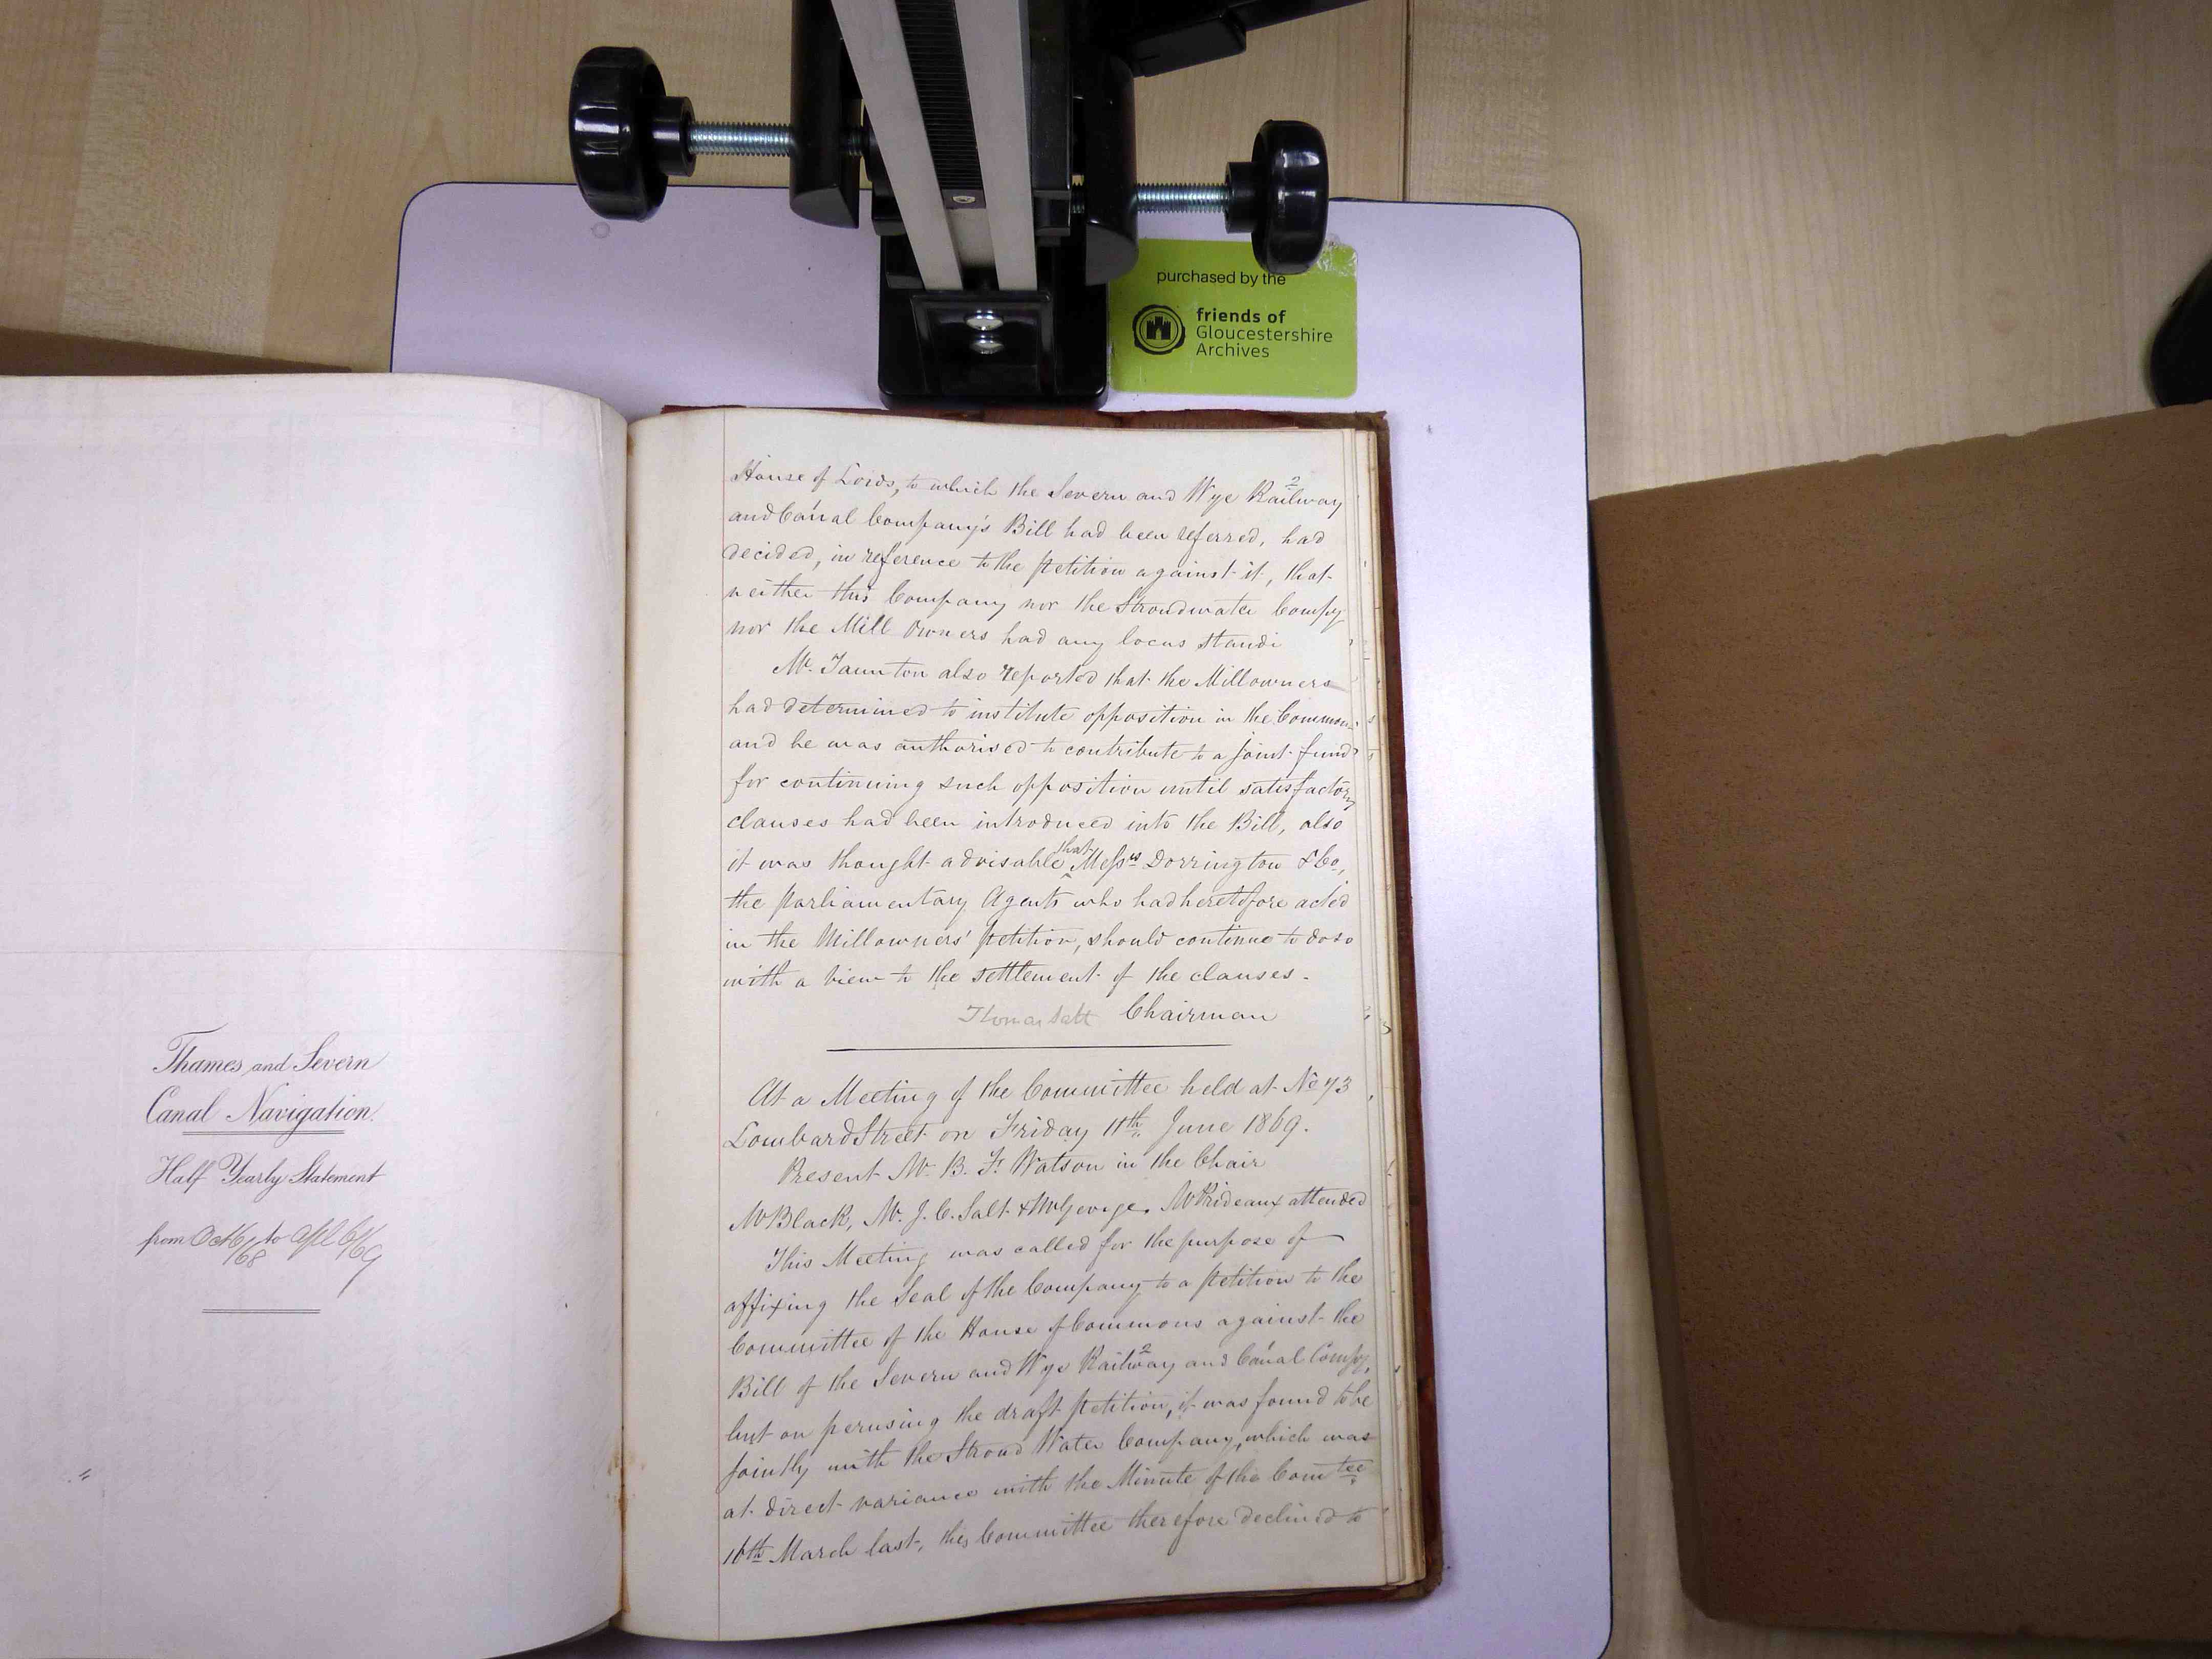 purchased by the
friends of
Gloucestershire
Archives
Thames and Severn
Canal Navigation.
Half Yearly Statement
from Oct 6/68 to Apl 6/69
House of Lords, to which the Severn and Wye Railway
2
and Canal Company's Bill had been referred, had
decided, in reference to the petition against it, that
neither this Company nor the Stroudwater Compy
nor the Mill Owners had any locus standi
Mr. Taunton also reported that the Millowners
had determined to institute opposition in the Commons
and he was authorised to contribute to a joint fund
for continuing such opposition until satisfactory
clauses had been introduced into the Bill, also
it was thought advisable that Messrs Dorrington & Co.,
the Parliamentary Agents who had heretofore acted
in the Millowners' petition, should continue to do so
with a view to the settlement of the clauses.
Thomas Salt Chairman
At a Meeting of the Committee held at No 73
Lombard Street on Friday 11th June 1869.
Present Mr. B. F. Watson in the Chair
Mr Black, Mr. J. C. Salt & Mr George. Mr Prideaux attended
This Meeting was called for the purpose of
affixing the Seal of the Company to a petition to the
Committee of the House of Commons against the
Bill of the Severn and Wye Railway 2 and Canal Compy,
but on perusing the draft petition, it was found to be
jointly with the Stroud Water Company, which was
at direct variance with the Minute of this Comtee
16th March last, this Committee therefore declined to